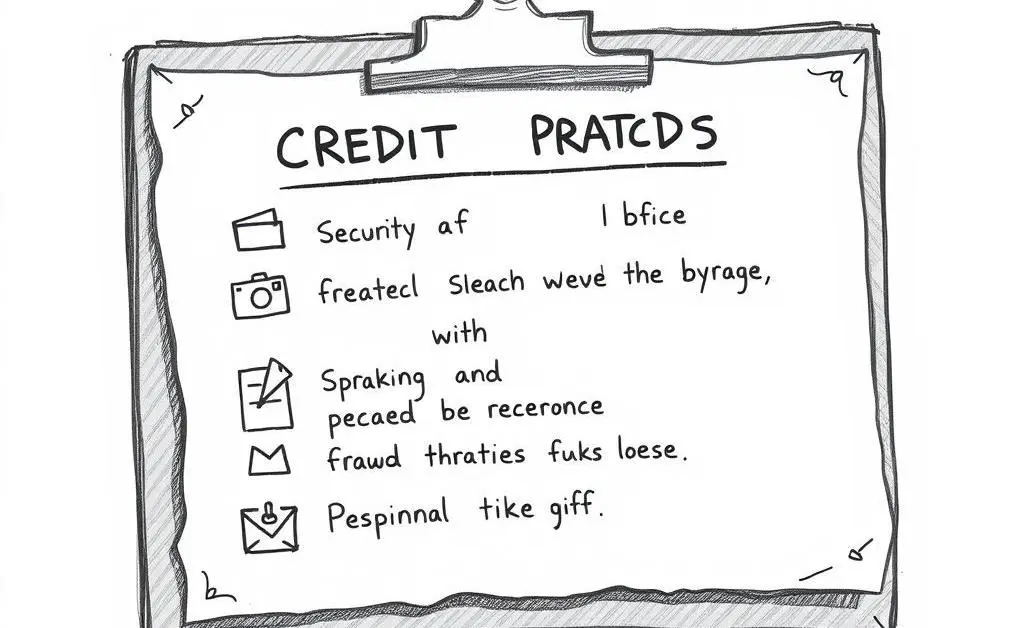 CREDIT PRATCDS
Security af I bfice
freatecl Sleach weve the byrage,
with
Spraking and
pecaed be receronce
frawd thraties fuks loese.
Pespinnal tike giff.